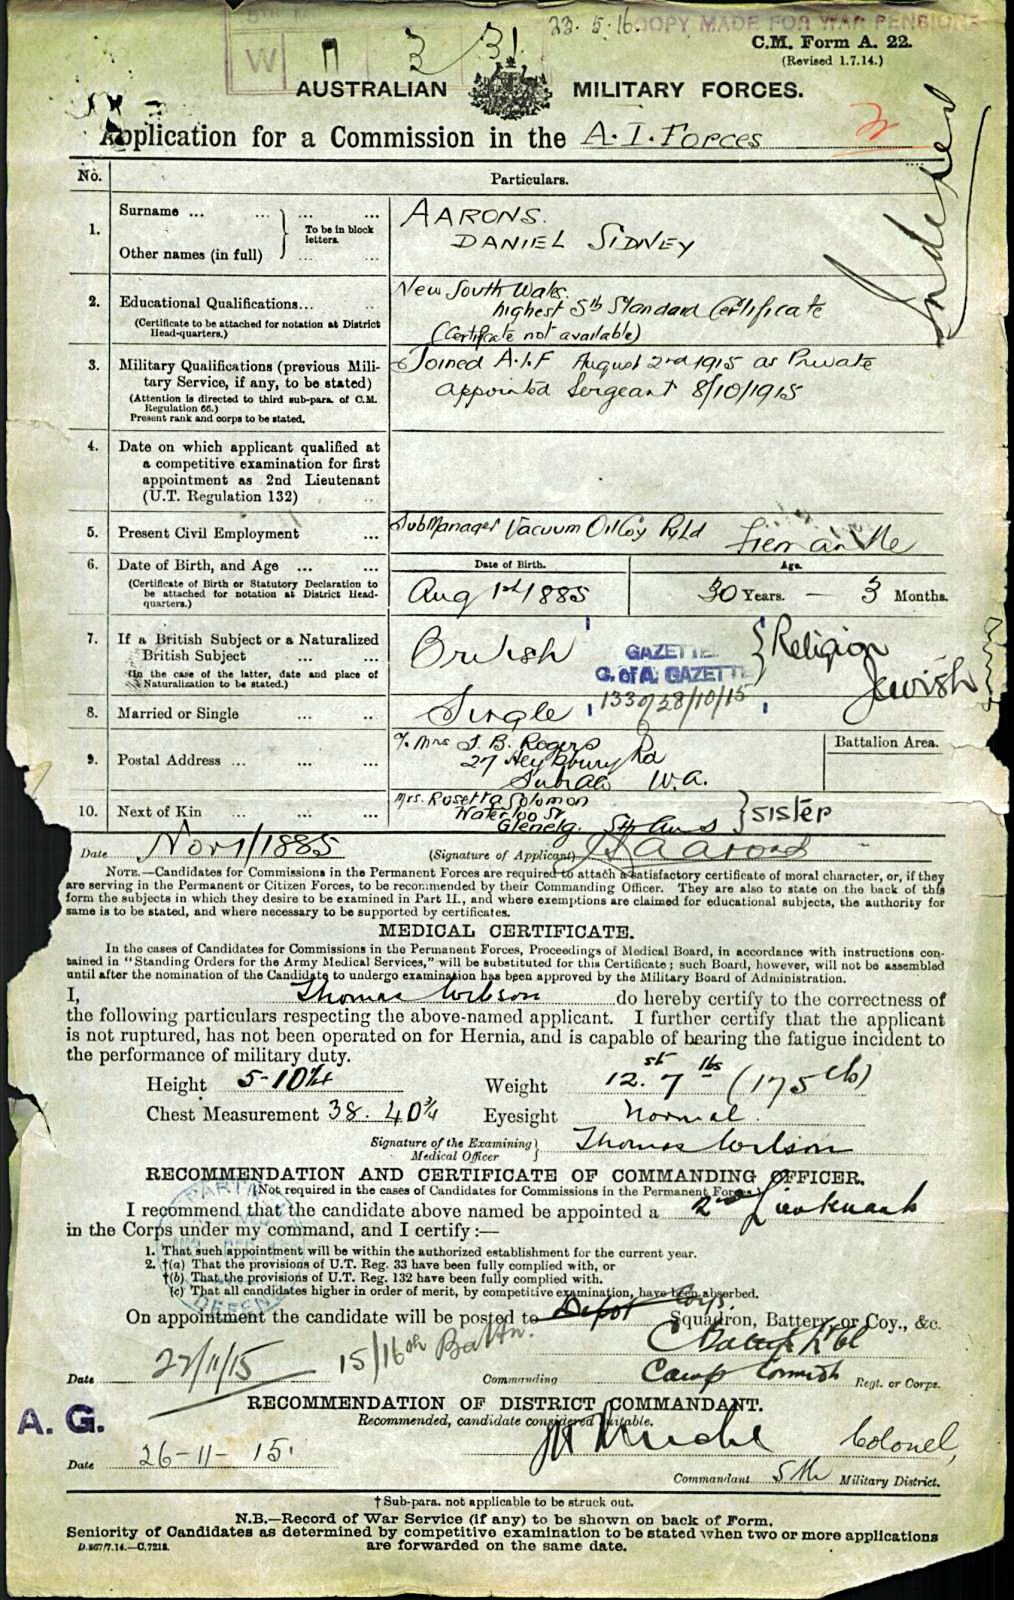 23.5.16
COPY MADE FOR WAR PENSIONS
W
C.M. Form A. 22.
(Revised 1.7.14.)
AUSTRALIAN MILITARY FORCES.
Application for a Commission in the A.I. Forces
No. Particulars.
1. Surname ... ... ... ... AARONS.
To be in block letters.
Other names (in full) ... ... DANIEL SIDNEY
2. Educational Qualifications... ... New South Wales
highest 5th Standard Certificate
(Certificate to be attached for notation at District Head-quarters.) (Certificate not available)
3. Military Qualifications (previous Military Service, if any, to be stated) Joined A.I.F August 2nd 1915 as Private
appointed Sergeant 8/10/1915
(Attention is directed to third sub-para. of C.M. Regulation 66.)
Present rank and corps to be stated.
4. Date on which applicant qualified at
a competitive examination for first
appointment as 2nd Lieutenant
(U.T. Regulation 132) ..
5. Present Civil Employment ... Sub Manager Vacuum Oil Coy Pty Ld Fremantle
6. Date of Birth, and Age ... ... Date of Birth. Age.
(Certificate of Birth or Statutory Declaration to be attached for notation at District Head-quarters.) Aug 1st 1885 30 Years. — 3 Months.
7. If a British Subject or a Naturalized
British Subject ... ... British
(In the case of the latter, date and place of Naturalization to be stated.)
Religion
Jewish
GAZETTE
C. of A. GAZETTE
133 28/10/15
8. Married or Single ... .. Single
9. Postal Address ... ... ... c/o Mrs J. B. Rogers
27 Heytesbury Rd
Subiaco W.A.
Battalion Area.
10. Next of Kin ... ... ... Mrs. Rosetta Solomon
Waterloo St
Glenelg. Sth Aus
SISTER
Date Nov 1/1885 (Signature of Applicant) DS Aarons
NOTE.—Candidates for Commissions in the Permanent Forces are required to attach a satisfactory certificate of moral character, or, if they
are serving in the Permanent or Citizen Forces, to be recommended by their Commanding Officer. They are also to state on the back of this
form the subjects in which they desire to be examined in Part II., and where exemptions are claimed for educational subjects, the authority for
same is to be stated, and where necessary to be supported by certificates.
MEDICAL CERTIFICATE.
In the cases of Candidates for Commissions in the Permanent Forces, Proceedings of Medical Board, in accordance with instructions con-
tained in "Standing Orders for the Army Medical Services," will be substituted for this Certificate; such Board, however, will not be assembled
until after the nomination of the Candidate to undergo examination has been approved by the Military Board of Administration.
I, Thomas Wilson do hereby certify to the correctness of
the following particulars respecting the above-named applicant. I further certify that the applicant
is not ruptured, has not been operated on for Hernia, and is capable of bearing the fatigue incident to
the performance of military duty.
Height 5-10¼ Weight 12.st 7 lbs (175 lb)
Chest Measurement 38. 40¾ Eyesight Normal.
Signature of the Examining Medical Officer Thomas Wilson
RECOMMENDATION AND CERTIFICATE OF COMMANDING OFFICER.
(Not required in the cases of Candidates for Commissions in the Permanent Forces.)
I recommend that the candidate above named be appointed a 2nd Lieutenant
in the Corps under my command, and I certify:—
1. That such appointment will be within the authorized establishment for the current year.
2. †(a) That the provisions of U.T. Reg. 33 have been fully complied with, or
†(b) That the provisions of U.T. Reg. 132 have been fully complied with.
(c) That all candidates higher in order of merit, by competitive examination, have been absorbed.
On appointment the candidate will be posted to Depot Corps. Squadron, Battery, or Coy., &c.
15/16th Battn.
Date 22/11/15 Commanding Camp Regt. or Corps.
RECOMMENDATION OF DISTRICT COMMANDANT.
A. G.
Recommended, candidate considered suitable.
Colonel,
Date 26-11-15.
Commandant 5th Military District.
† Sub-para. not applicable to be struck out.
N.B.—Record of War Service (if any) to be shown on back of Form.
Seniority of Candidates as determined by competitive examination to be stated when two or more applications
are forwarded on the same date.
D.867/7.14.—C.7218.